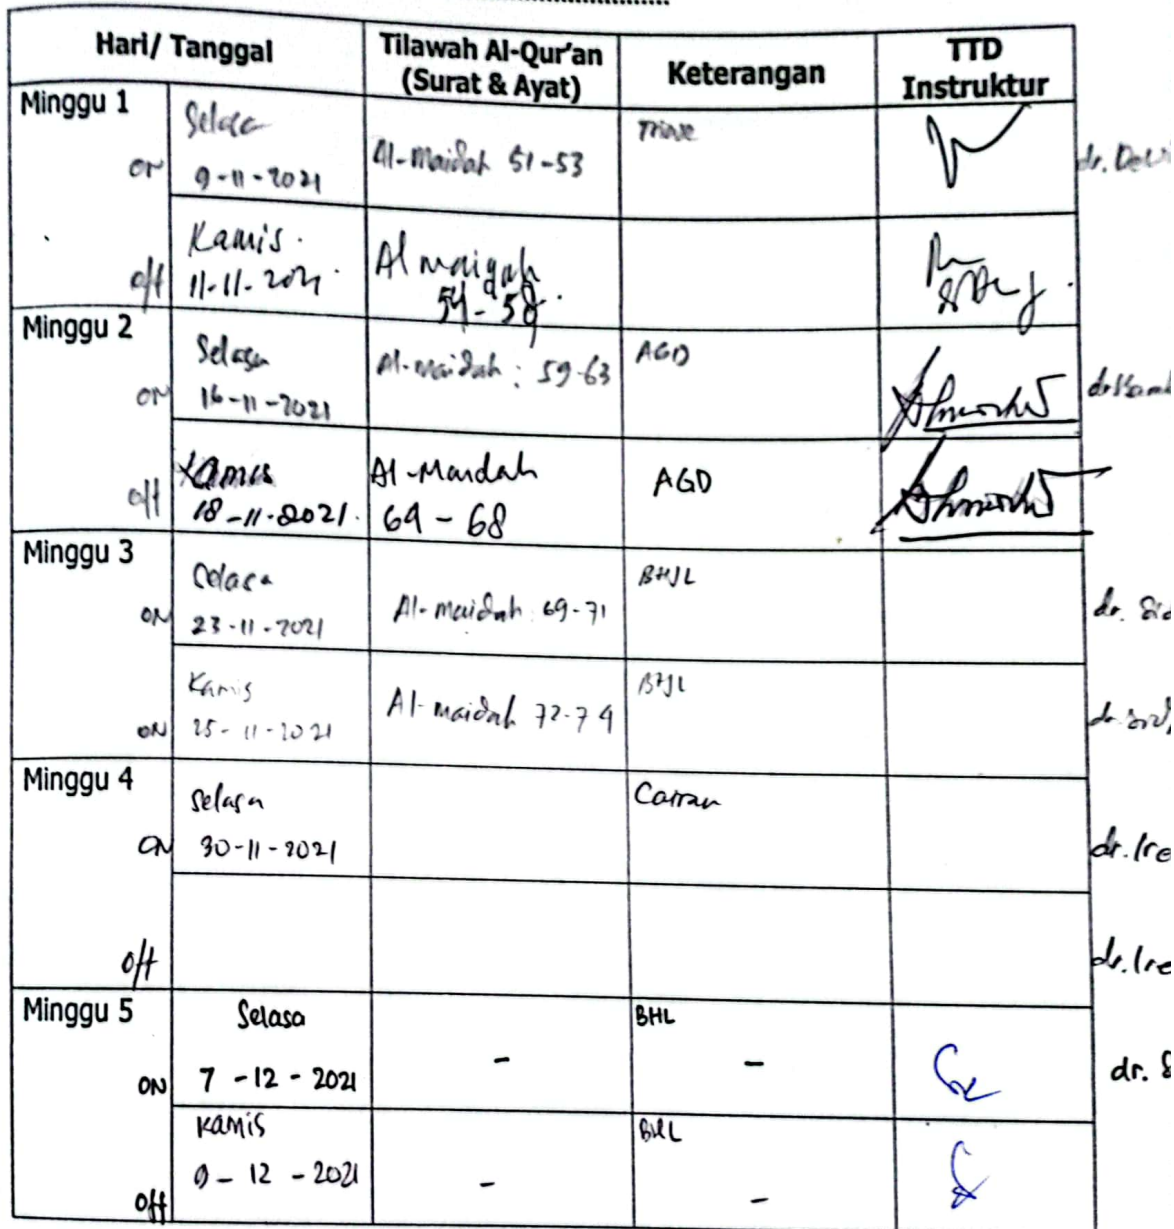 Hari/ Tanggal
Tilawah Al-Qur'an
(Surat & Ayat)
Keterangan
TTD
Instruktur
Minggu 1
ON
Selasa
9-11-2021
Al-Maidah 51-53
off
Kamis
11-11-2021
54-58
Minggu 2
ON
Selasa
16-11-2021
Al-maidah : 59-63
AGD
off
Kamis
18-11-2021
Al-Maidah
64 - 68
AGD
Minggu 3
ON
Selasa
23-11-2021
Al-maidah 69-71
dr.
ON
Kamis
25-11-2021
Al-maidah 72-74
dr.
Minggu 4
ON
Selasa
30-11-2021
dr. Ire
off
dr. Ire
Minggu 5
ON
Selasa
7 - 12 - 2021
-
BHL
-
dr. S
off
Kamis
9 - 12 - 2021
-
BHL
-